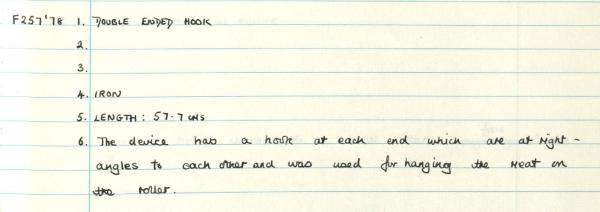 F257'78 1. DOUBLE ENDED HOOK
2.
3.
4. IRON
5. LENGTH: 57.7 CMS
6. The device has a hook at each end which are at right-
angles to each other and was used for hanging the meat on
the roller.